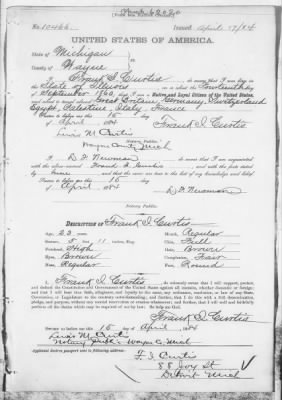 No. 10466. Issued April 17/84
UNITED STATES OF AMERICA.
State of Michigan
County of Wayne
I, Frank I. Curtis, do swear that I was born in
the State of Illinois on or about the Fourteenth day
of September 1860, that I am a Native and Loyal Citizen of the United States,
and about to travel abroad Great Britain, Germany, Switzerland
Egypt, Palestine, Italy, France
Sworn to before me this 15 day
of April 1884 Frank I. Curtis
Lewis M. Curtis
Notary Public.
Wayne County Mich
I, D. F. Newman, do swear that I am acquainted
with the above-named Frank I. Curtis and with the facts stated
by him and that the same are true to the best of my knowledge and belief.
Sworn to before me this 15
day of April 1884 D. F. Newman
Notary Public.
DESCRIPTION OF Frank I. Curtis
Age, 23 years. Mouth, Regular
Stature, 5 feet 11 inches, Eng. Chin, Full
Forehead, High Hair, Brown
Eyes, Brown Complexion, Fair
Nose, Regular Face, Round
I, Frank I. Curtis, do solemnly swear that I will support, protect,
and defend the Constitution of the United States against all enemies, whether domestic or foreign;
and that I will bear true faith, allegiance, and loyalty to the same, any ordinance, resolution, or law of any State,
Convention, or Legislature to the contrary notwithstanding; and further, that I do this with a full determination,
pledge, and purpose, without any mental reservation or evasion whatsoever; and further, that I will well and faithfully
perform all the duties which may be required of me by law: So help me God.
Frank I. Curtis
Sworn to before me this 15 day of April 1884
Lewis M. Curtis
Notary Public Wayne Co. Mich
Applicant desires passport sent to following address:
F. I. Curtis
88 Joy St
Detroit Mich